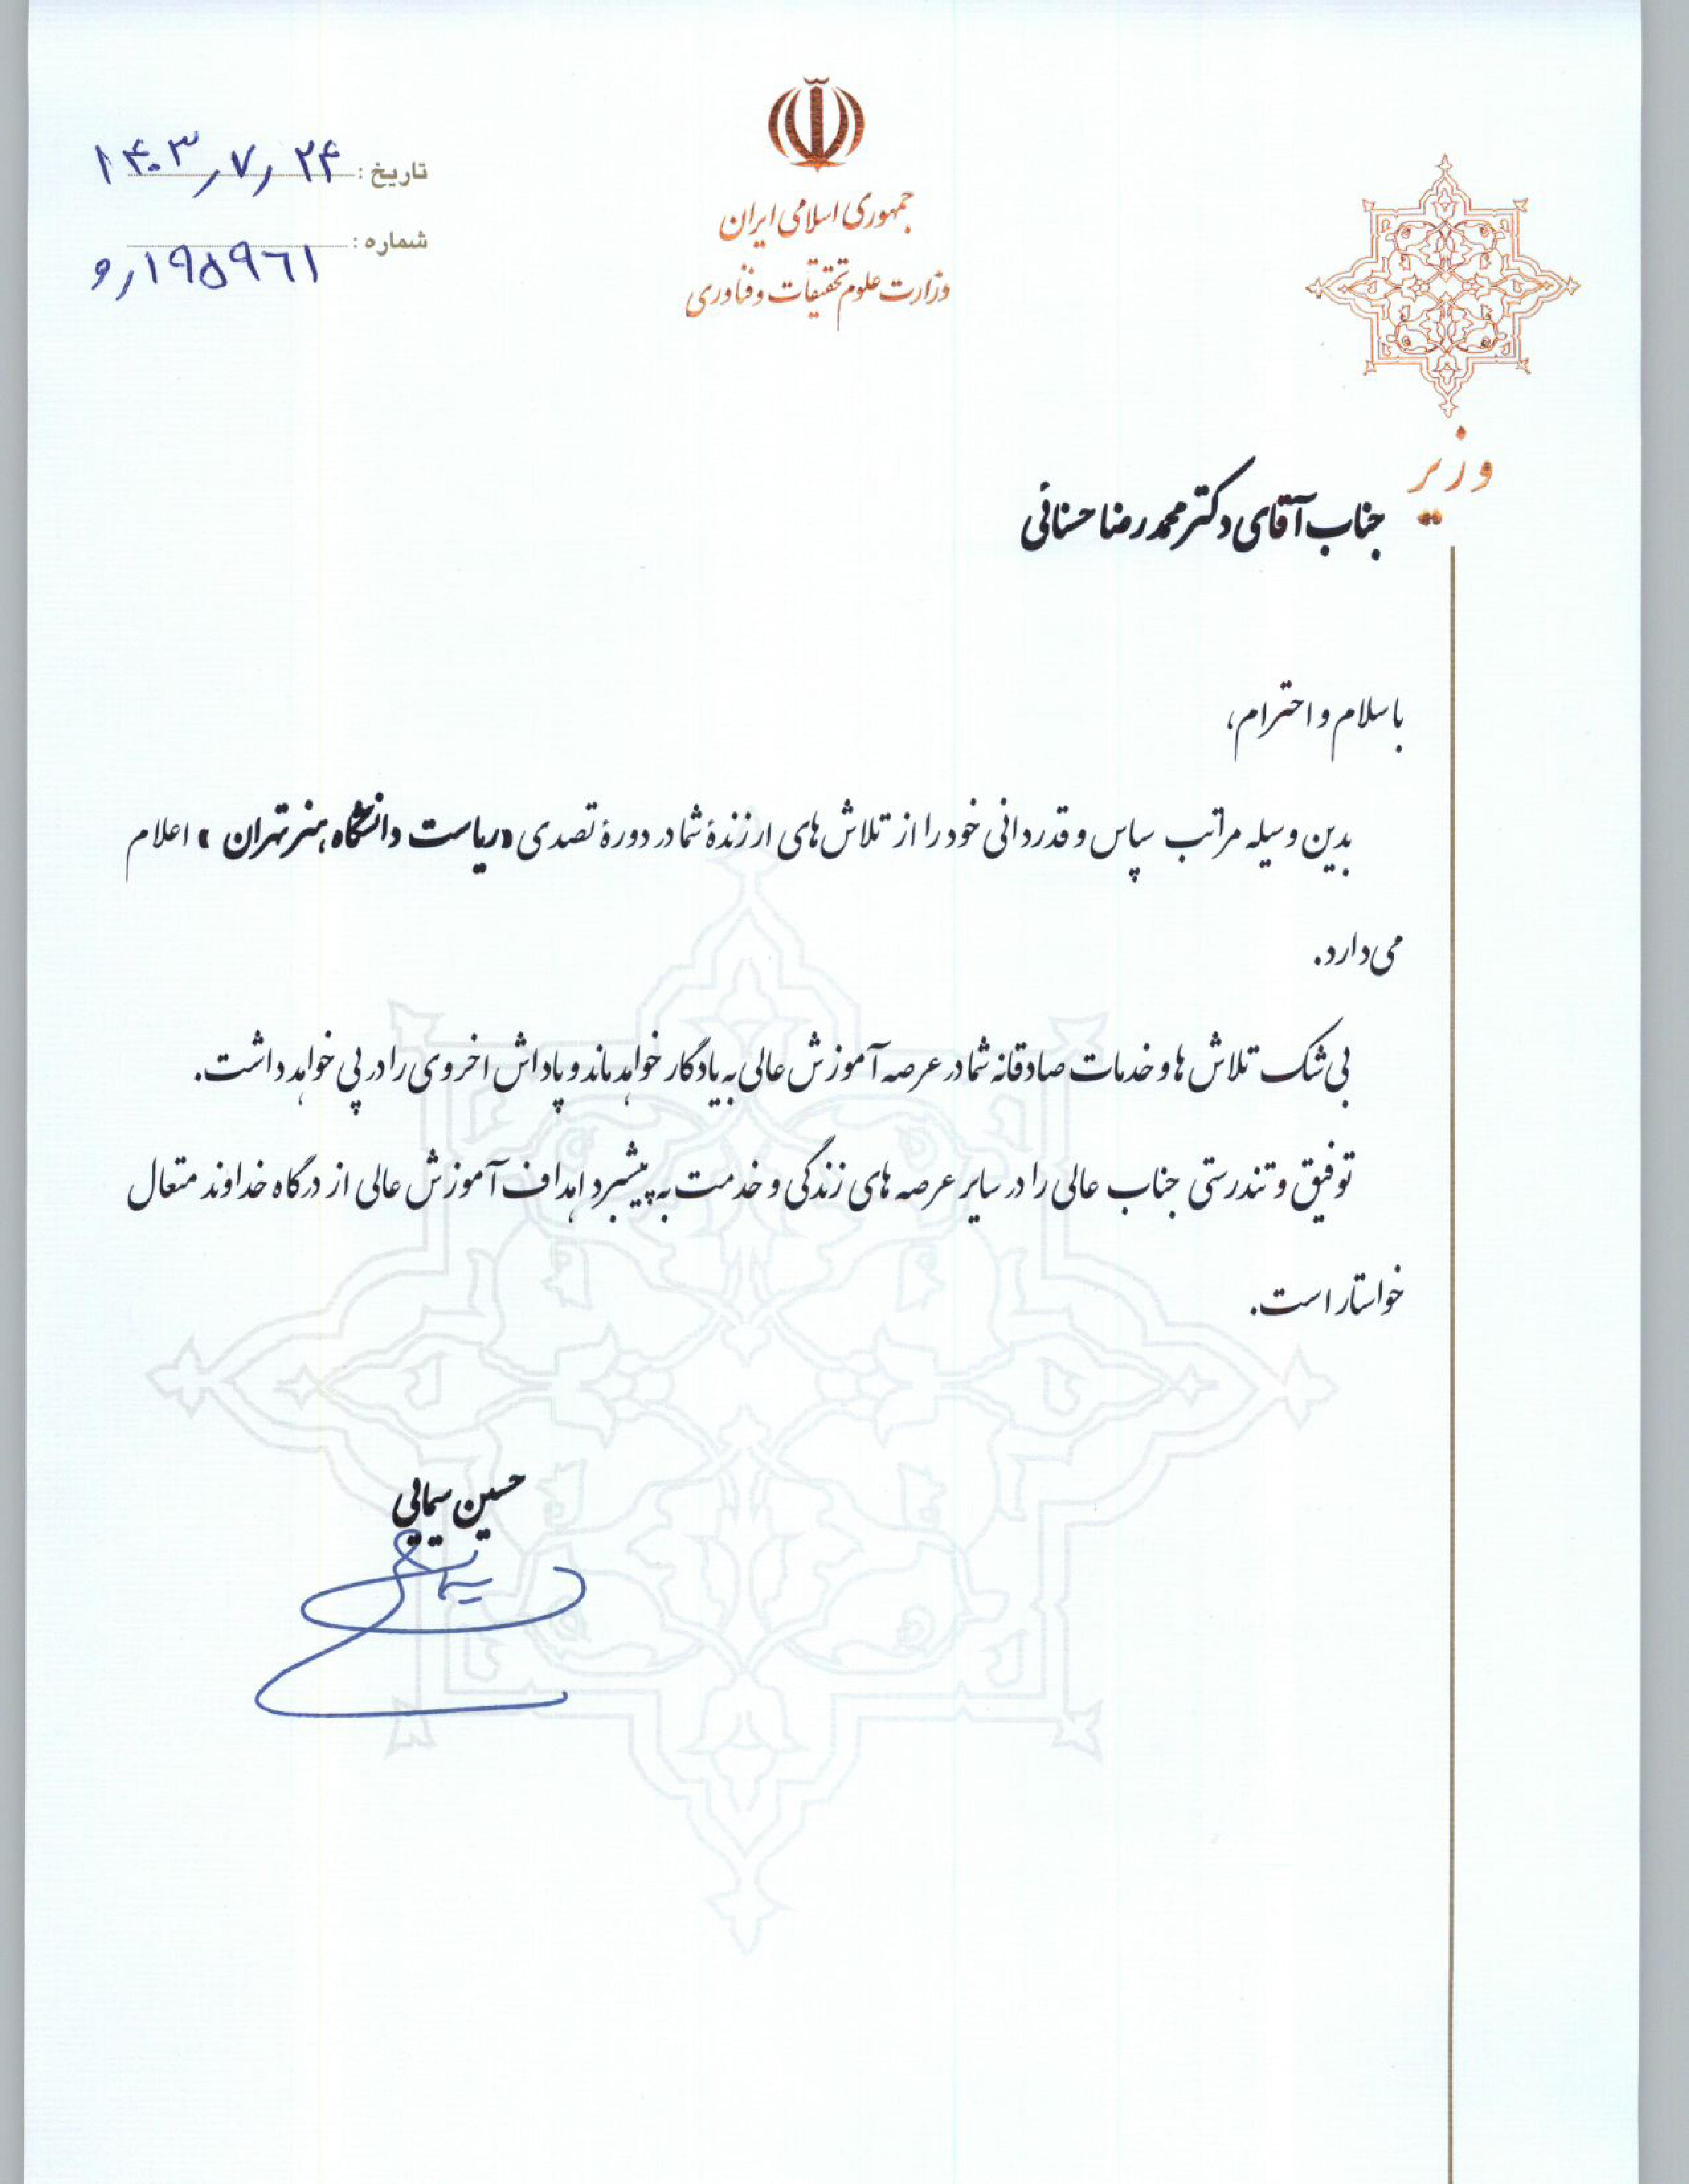 جمهوری اسلامی ایران
وزارت علوم تحقیقات و فناوری
تاریخ : ۱۴۰۳٫۷٫۲۴
شماره : ۱۹۵۹۶۱٫و
وزیر
جناب آقای دکتر محمدرضا حسنائی
با سلام و احترام،
بدین وسیله مراتب سپاس و قدردانی خود را از تلاش های ارزندۀ شما در دورۀ تصدی «ریاست دانشگاه هنر تهران » اعلام
می دارد.
بی شک تلاش ها و خدمات صادقانه شما در عرصه آموزش عالی به یادگار خواهد ماند و پاداش اخروی را در پی خواهد داشت.
توفیق و تندرستی جناب عالی را در سایر عرصه های زندگی و خدمت به پیشبرد اهداف آموزش عالی از درگاه خداوند متعال
خواستار است.
حسین سیمایی